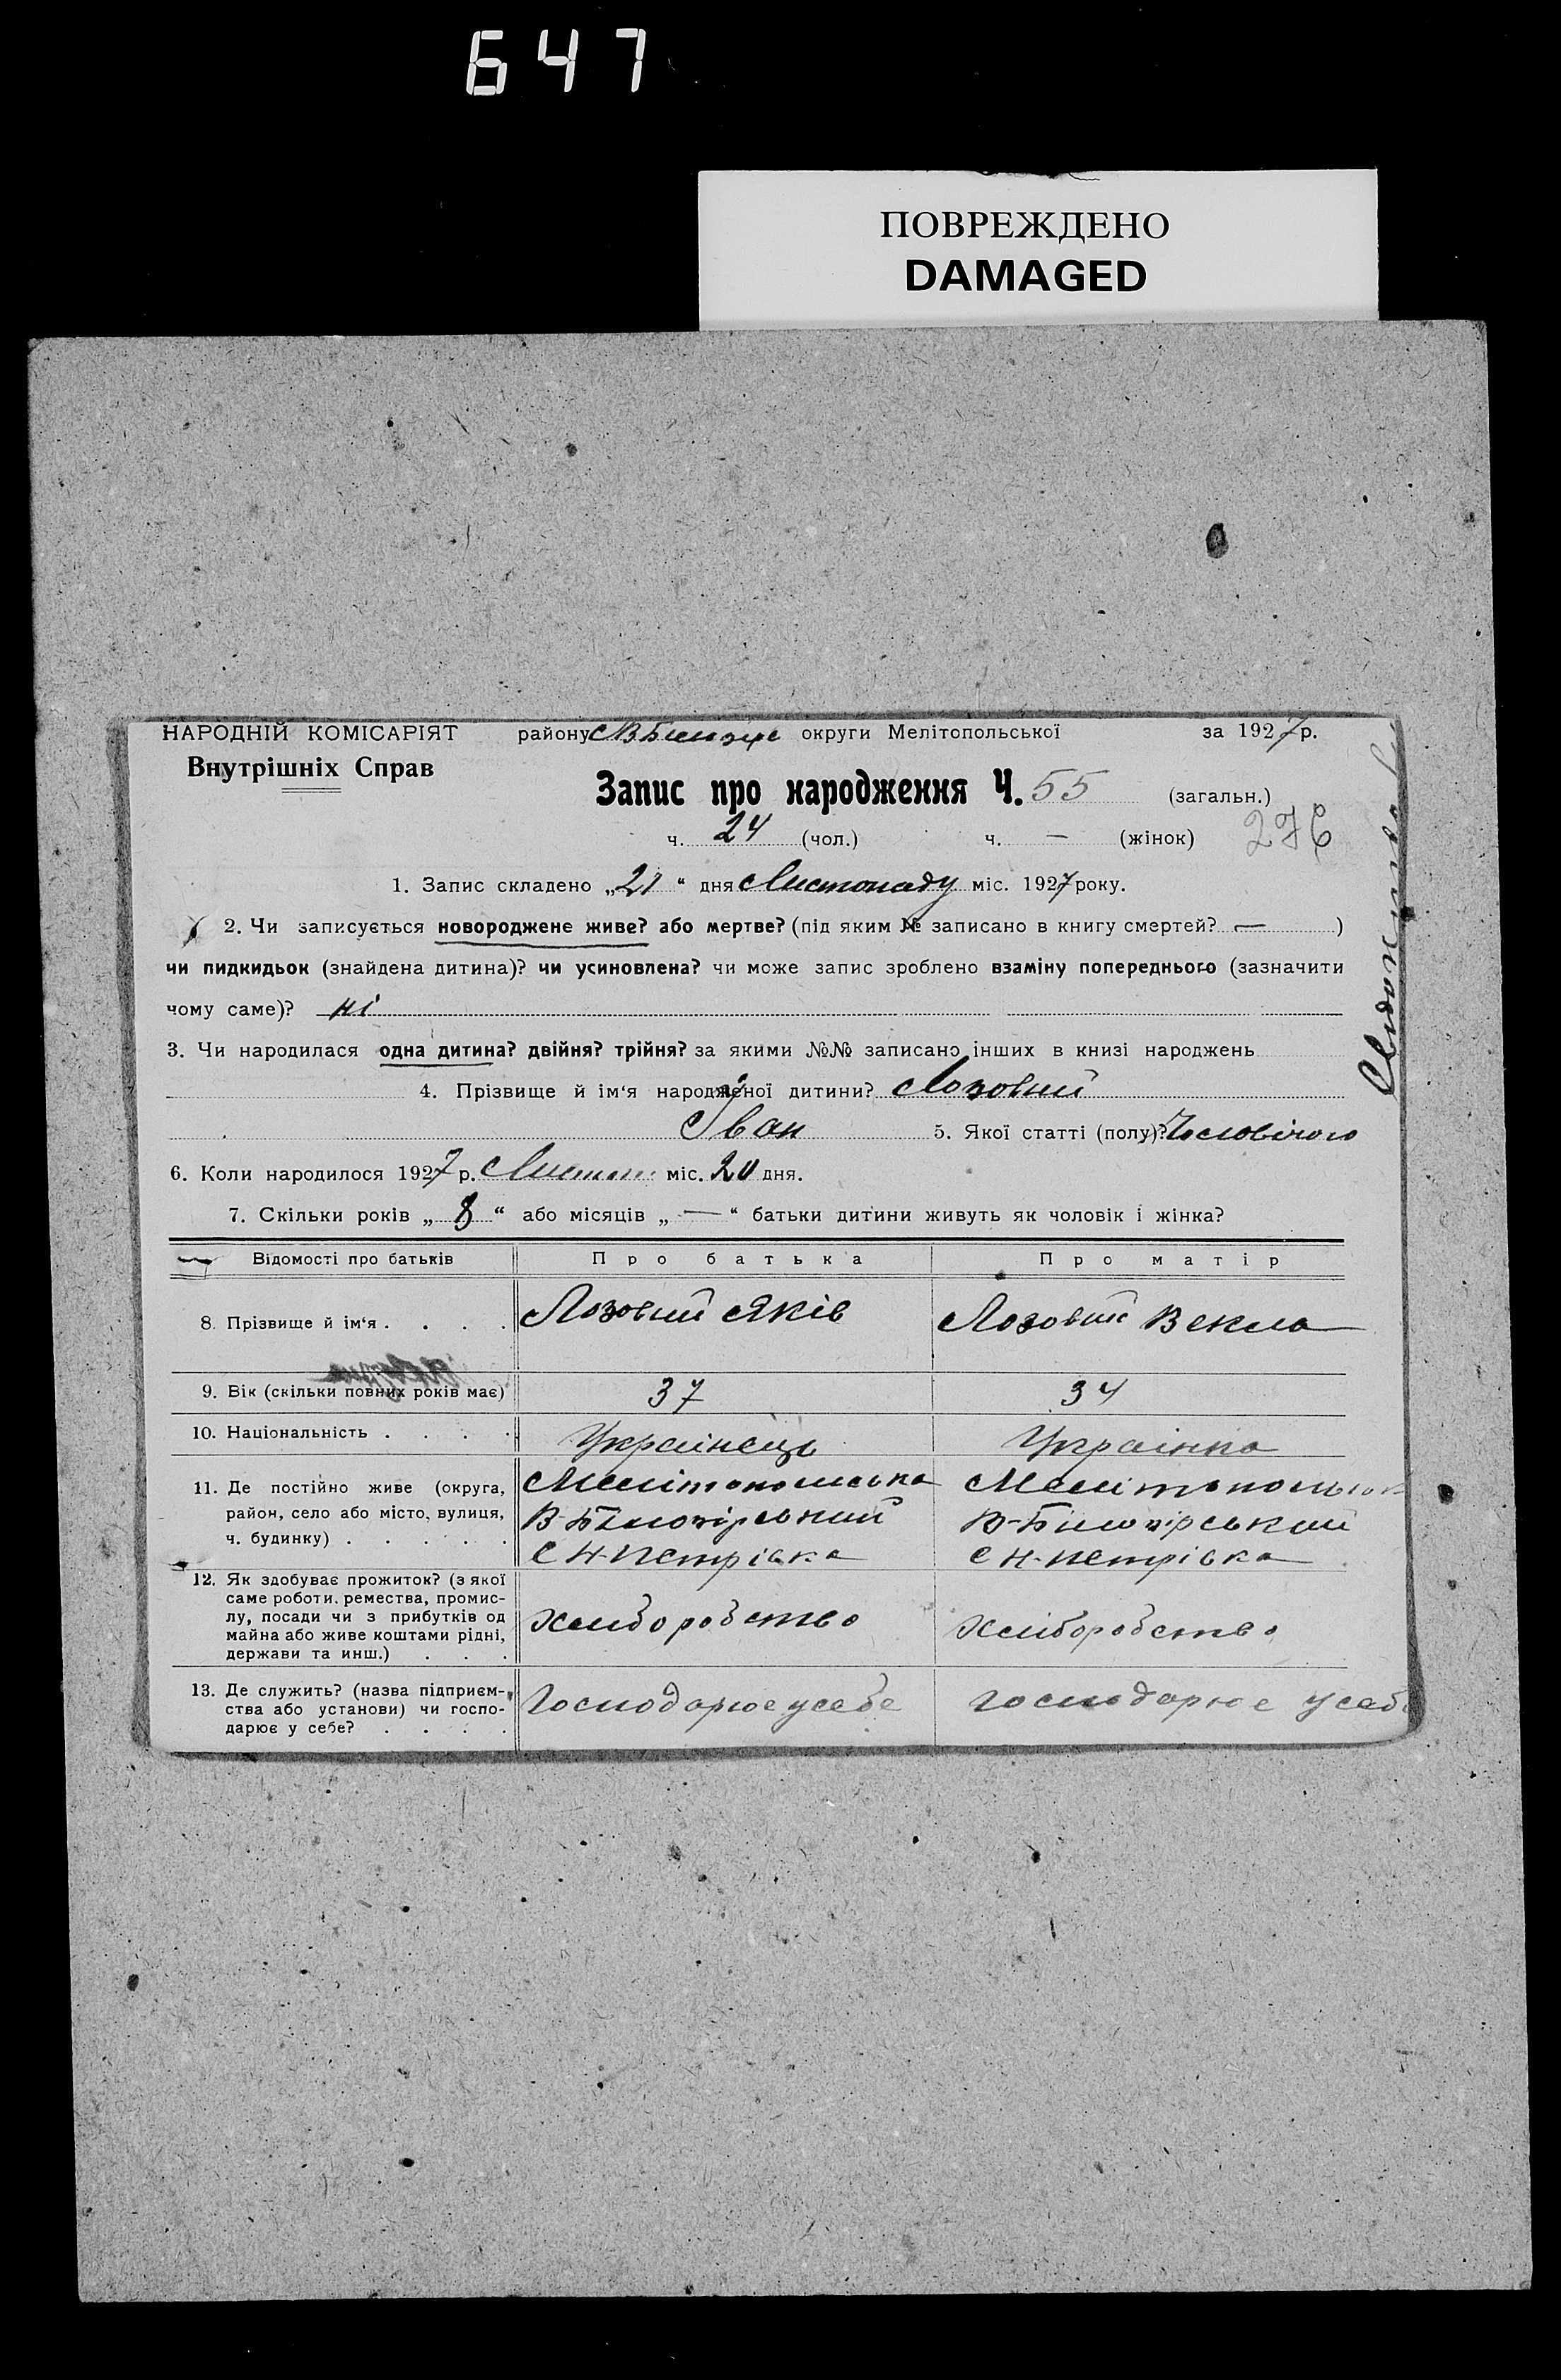 647
ПОВРЕЖДЕНО
DAMAGED
НАРОДНІЙ КОМІСАРІЯТ району округи Мелітопольської за 1927 р.
Внутрішніх Справ
Запис про народження Ч. 55 (загальн.)
ч. 24 (чол.) ч. — (жінок) 276
1. Запис складено „21“ дня Листопаду міс. 1927 року.
2. Чи записується новороджене живе? або мертве? (під яким № записано в книгу смертей? — )
чи пидкидьок (знайдена дитина)? чи усиновлена? чи може запис зроблено взаміну попереднього (зазначити
чому саме)? ні
3. Чи народилася одна дитина? двійня? трійня? за якими №№ записано інших в книзі народжень
4. Прізвище й ім‘я народженої дитини? Лозовий
Іван 5. Якої статті (полу)? Чоловічого
6. Коли народилося 1927 р. Листоп міс. 20 дня.
7. Скільки років „ 8 “ або місяців „ — “ батьки дитини живуть як чоловік і жінка?
Відомості про батьків Про батька Про матір
8. Прізвище й ім‘я . . . . Лозовий Яків Лозовий Векла
9. Вік (скільки повних років має) 37 34
10. Національність . . . . Украінець Украінка
11. Де постійно живе (округа, Мелітопольська Мелітопольськ
район, село або місто, вулиця, В-Білозірський В-Білозірський
ч. будинку) . . . . . С Н-Петрівка С Н-Петрівка
12. Як здобуває прожиток? (з якої
саме роботи, ремества, промис-
лу, посади чи з прибутків од Хліборобство Хліборобство
майна або живе коштами рідні,
держави та инш.) . . .
13. Де служить? (назва підприєм- Господарює у себе господарює у себе
ства або установи) чи госпо-
дарює у себе? . . . .